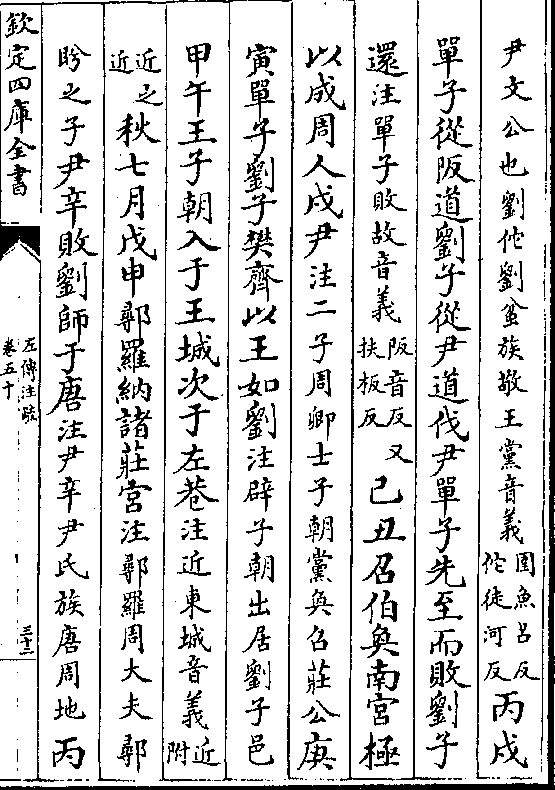 尹文公也劉佗劉蚠族敬王黨音義圉魚呂反佗徒河反丙戌
單子從阪道劉子從尹道伐尹單子先至而敗劉子
還注單子敗故音義阪音反又扶板反己丑召伯奐南宮極
以成周人戍尹注二子周卿士子朝黨奐召莊公庚
寅單子劉子樊齊以王如劉注辟子朝出居劉子邑
甲午王子朝入于王城次于左巷注近東城音義近附
近之近秋七月戊申鄩羅納諸莊宮注鄩羅周大夫鄩
肹之子尹辛敗劉師于唐注尹辛尹氏族唐周地丙
欽定四庫全書
左傳注疏
卷五十
三十二